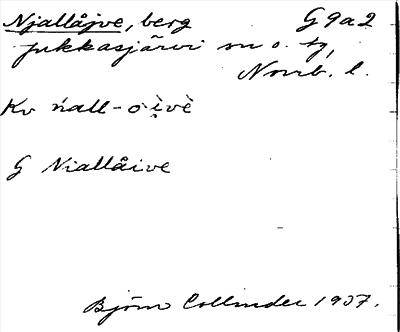 Njallåjve, berg G9a2
Jukkasjärvi sn o. tg,
Norrb. l.
Kv ńall-ȯi̯vè
G Niallåive
Björn Collinder 1937.